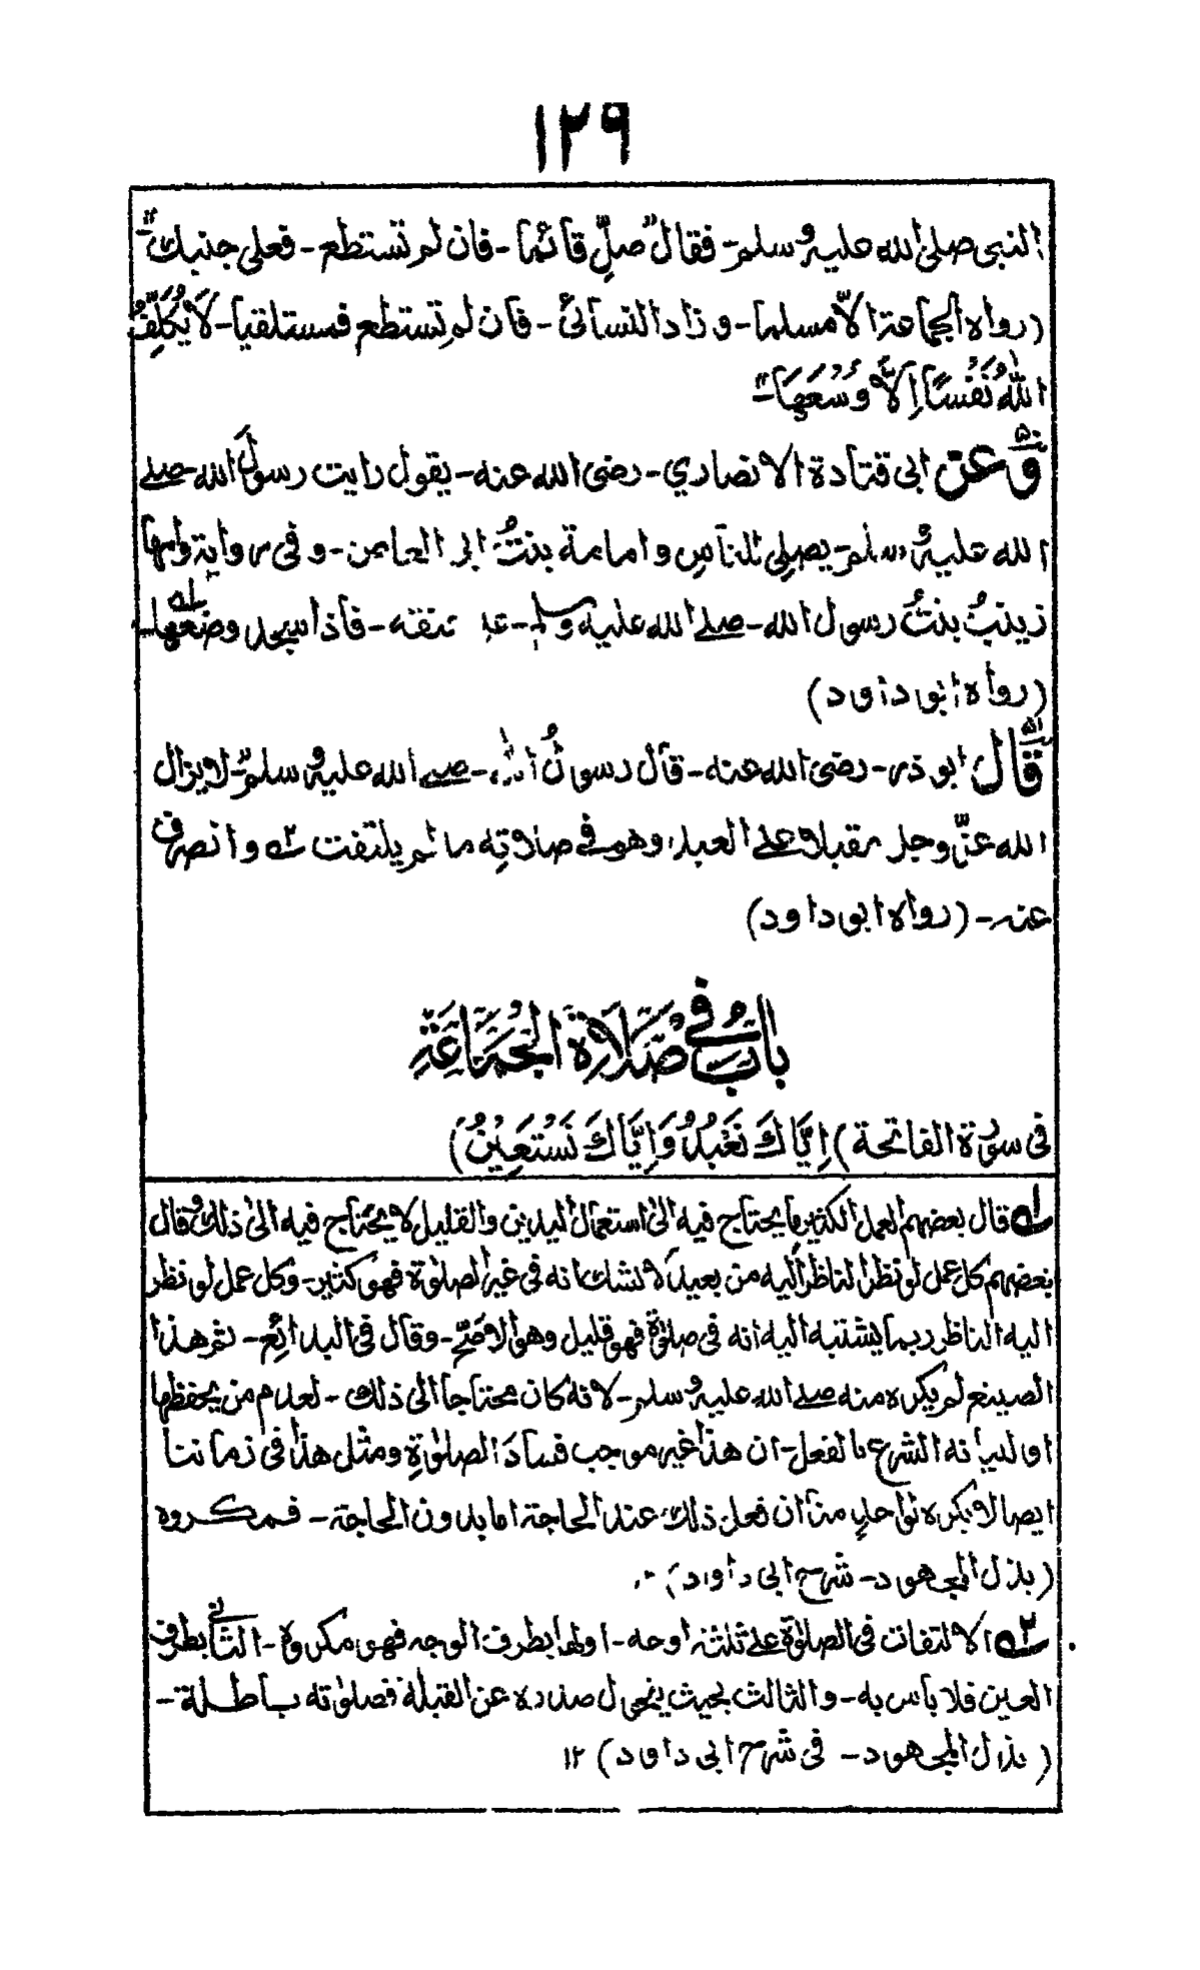 ١٢٩
النبى صلى الله عليه وسلم - فقال "صلِّ قائما - فان لم تستطع - فعلى جنبك"
(رواه الجماعة الا مسلما - وزاد النسائى - فان لم تستطع فمستلقيا - لَا يُكَلِّفُ
اللهُ نَفْسًا اِلَّا وُسْعَهَا" -
وعن ابى قتادة الانصاري - رضى الله عنه - يقول رايت رسول الله - صلى
الله عليه وسلم - يصلى للناس وامامة بنتُ ابى العاص - وفى رواية وامها
زينبُ بنتُ رسول الله - صلى الله عليه وسلم - على عنقه - فاذا سجد وضعها له -
(رواه ابو داود)
قال ابو ذر - رضى الله عنه - قال رسولُ الله - صلى الله عليه وسلم - لا يزال
الله عزّ وجل مقبلا على العبد وهو فى صلاته ما لم يلتفت ٢ه وانصرف
عنه - (رواه ابو داود)
بابُ فى صَلَاةِ الجُمَاعَةِ
فى سورة الفاتحة) اِيَّاكَ نَعْبُدُ وَاِيَّاكَ نَسْتَعِيْنُ)
١ه قال بعضهم العمل الكثير ما يحتاج فيه الى استعمال اليدين والقليل لا يحتاج فيه الى ذلك وقال
بعضهم كل عمل لو نظر الناظر اليه من بعيد لا يشك انه فى غير الصلوة فهو كثير - وكل عمل لو نظر
اليه الناظر ربما يشتبه اليه انه فى صلوة فهو قليل وهو الاصح - وقال فى البدائع - ثم هذا
الصنيع لم يكره منه صلى الله عليه وسلم - لانه كان محتاجا الى ذلك - لعدم من يحفظها
او لبيانه الشرع بالفعل - ان هذا غير موجب فسادَ الصلوٰةِ ومثل هذا فى زماننا
ايضا لا يكره لواحدٍ منا ان فعل ذلك عند الحاجة اما بدون الحاجة - فمكروه
(بذل المجهود - شرح ابى داود)
٢ه الالتفات فى الصلوٰة على ثلثة اوجه - اولها بطرف الوجه فهو مكروة - الثانى بطرف
العين فلا باس به - والثالث بحيث يتحول صدره عن القبلة فصلوٰته باطلة -
(بذل المجهود - فى شرح ابى داود) ١٢